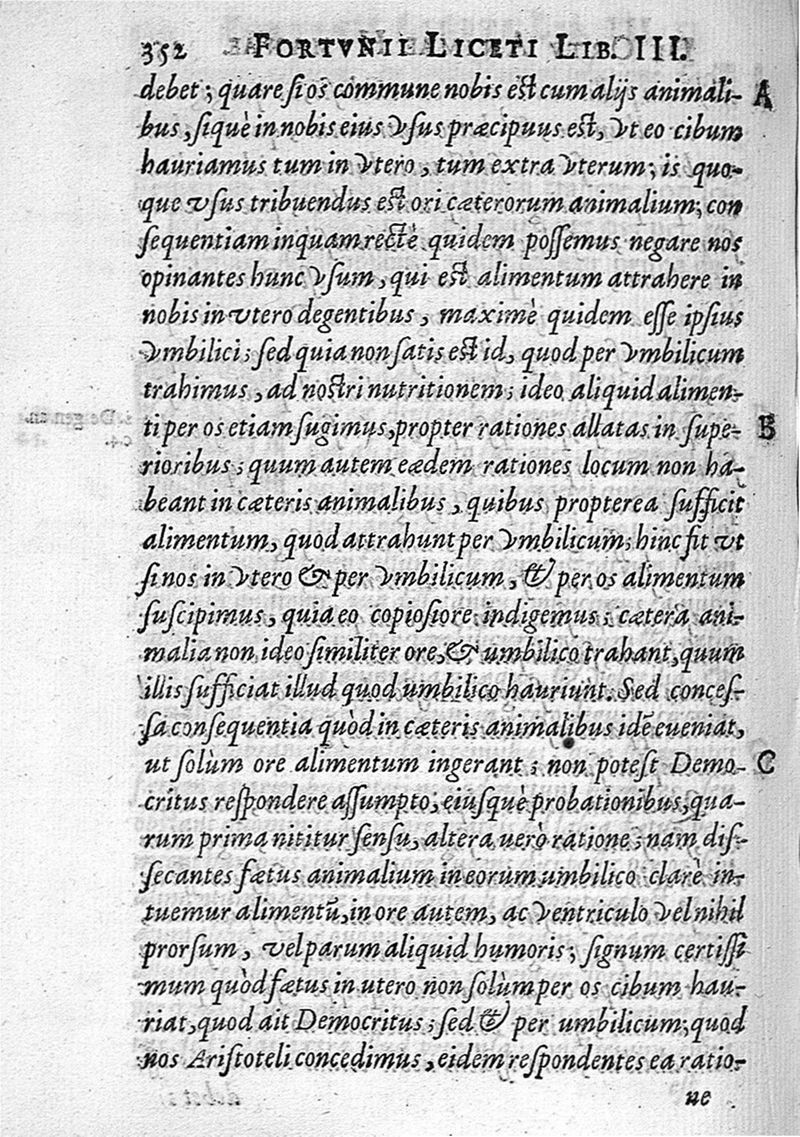 352 FORTVNII LICETI LIB. III.
debet; quare si os commune nobis est cum alijs animali- A
bus, siquè in nobis eius vsus præcipuus est, vt eo cibum
hauriamus tum in vtero, tum extra vterum; is quo-
que vsus tribuendus est ori cæterorum animalium; con
sequentiam inquam rectè quidem possemus negare nos
opinantes hunc vsum, qui est alimentum attrahere in
nobis in vtero degentibus, maximè quidem esse ipsius
vmbilici; sed quia non satis est id, quod per vmbilicum
trahimus, ad nostri nutritionem; ideo aliquid alimen-
ti per os etiam sugimus, propter rationes allatas in supe- B
rioribus; quum autem eædem rationes locum non ha-
beant in cæteris animalibus, quibus propterea sufficit
alimentum, quod attrahunt per vmbilicum; hinc fit vt
si nos in vtero & per vmbilicum, & per os alimentum
suscipimus, quia eo copiosiore indigemus; cætera ani-
malia non ideo similiter ore, & umbilico trahant, quum
illis sufficiat illud quod umbilico hauriunt. Sed conces-
sa consequentia quòd in cæteris animalibus idē eueniat,
ut solùm ore alimentum ingerant; non potest Demo- C
critus respondere assumpto; eiusquè probationibus, qua-
rum prima nititur sensu, altera uerò ratione; nam dis-
secantes fætus animalium in eorum umbilico clarè in-
tuemur alimentū, in ore autem, ac ventriculo vel nihil
prorsum, vel parum aliquid humoris; signum certissi
mum quòd fætus in utero non solùm per os cibum hau-
riat, quod ait Democritus; sed & per umbilicum; quod
nos Aristoteli concedimus, eidem respondentes ea ratio-
ne